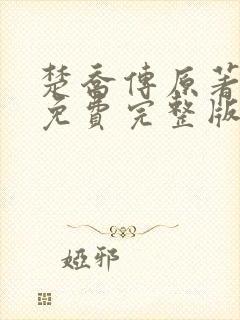 楚喬傳原著
免費完整版
婭邪